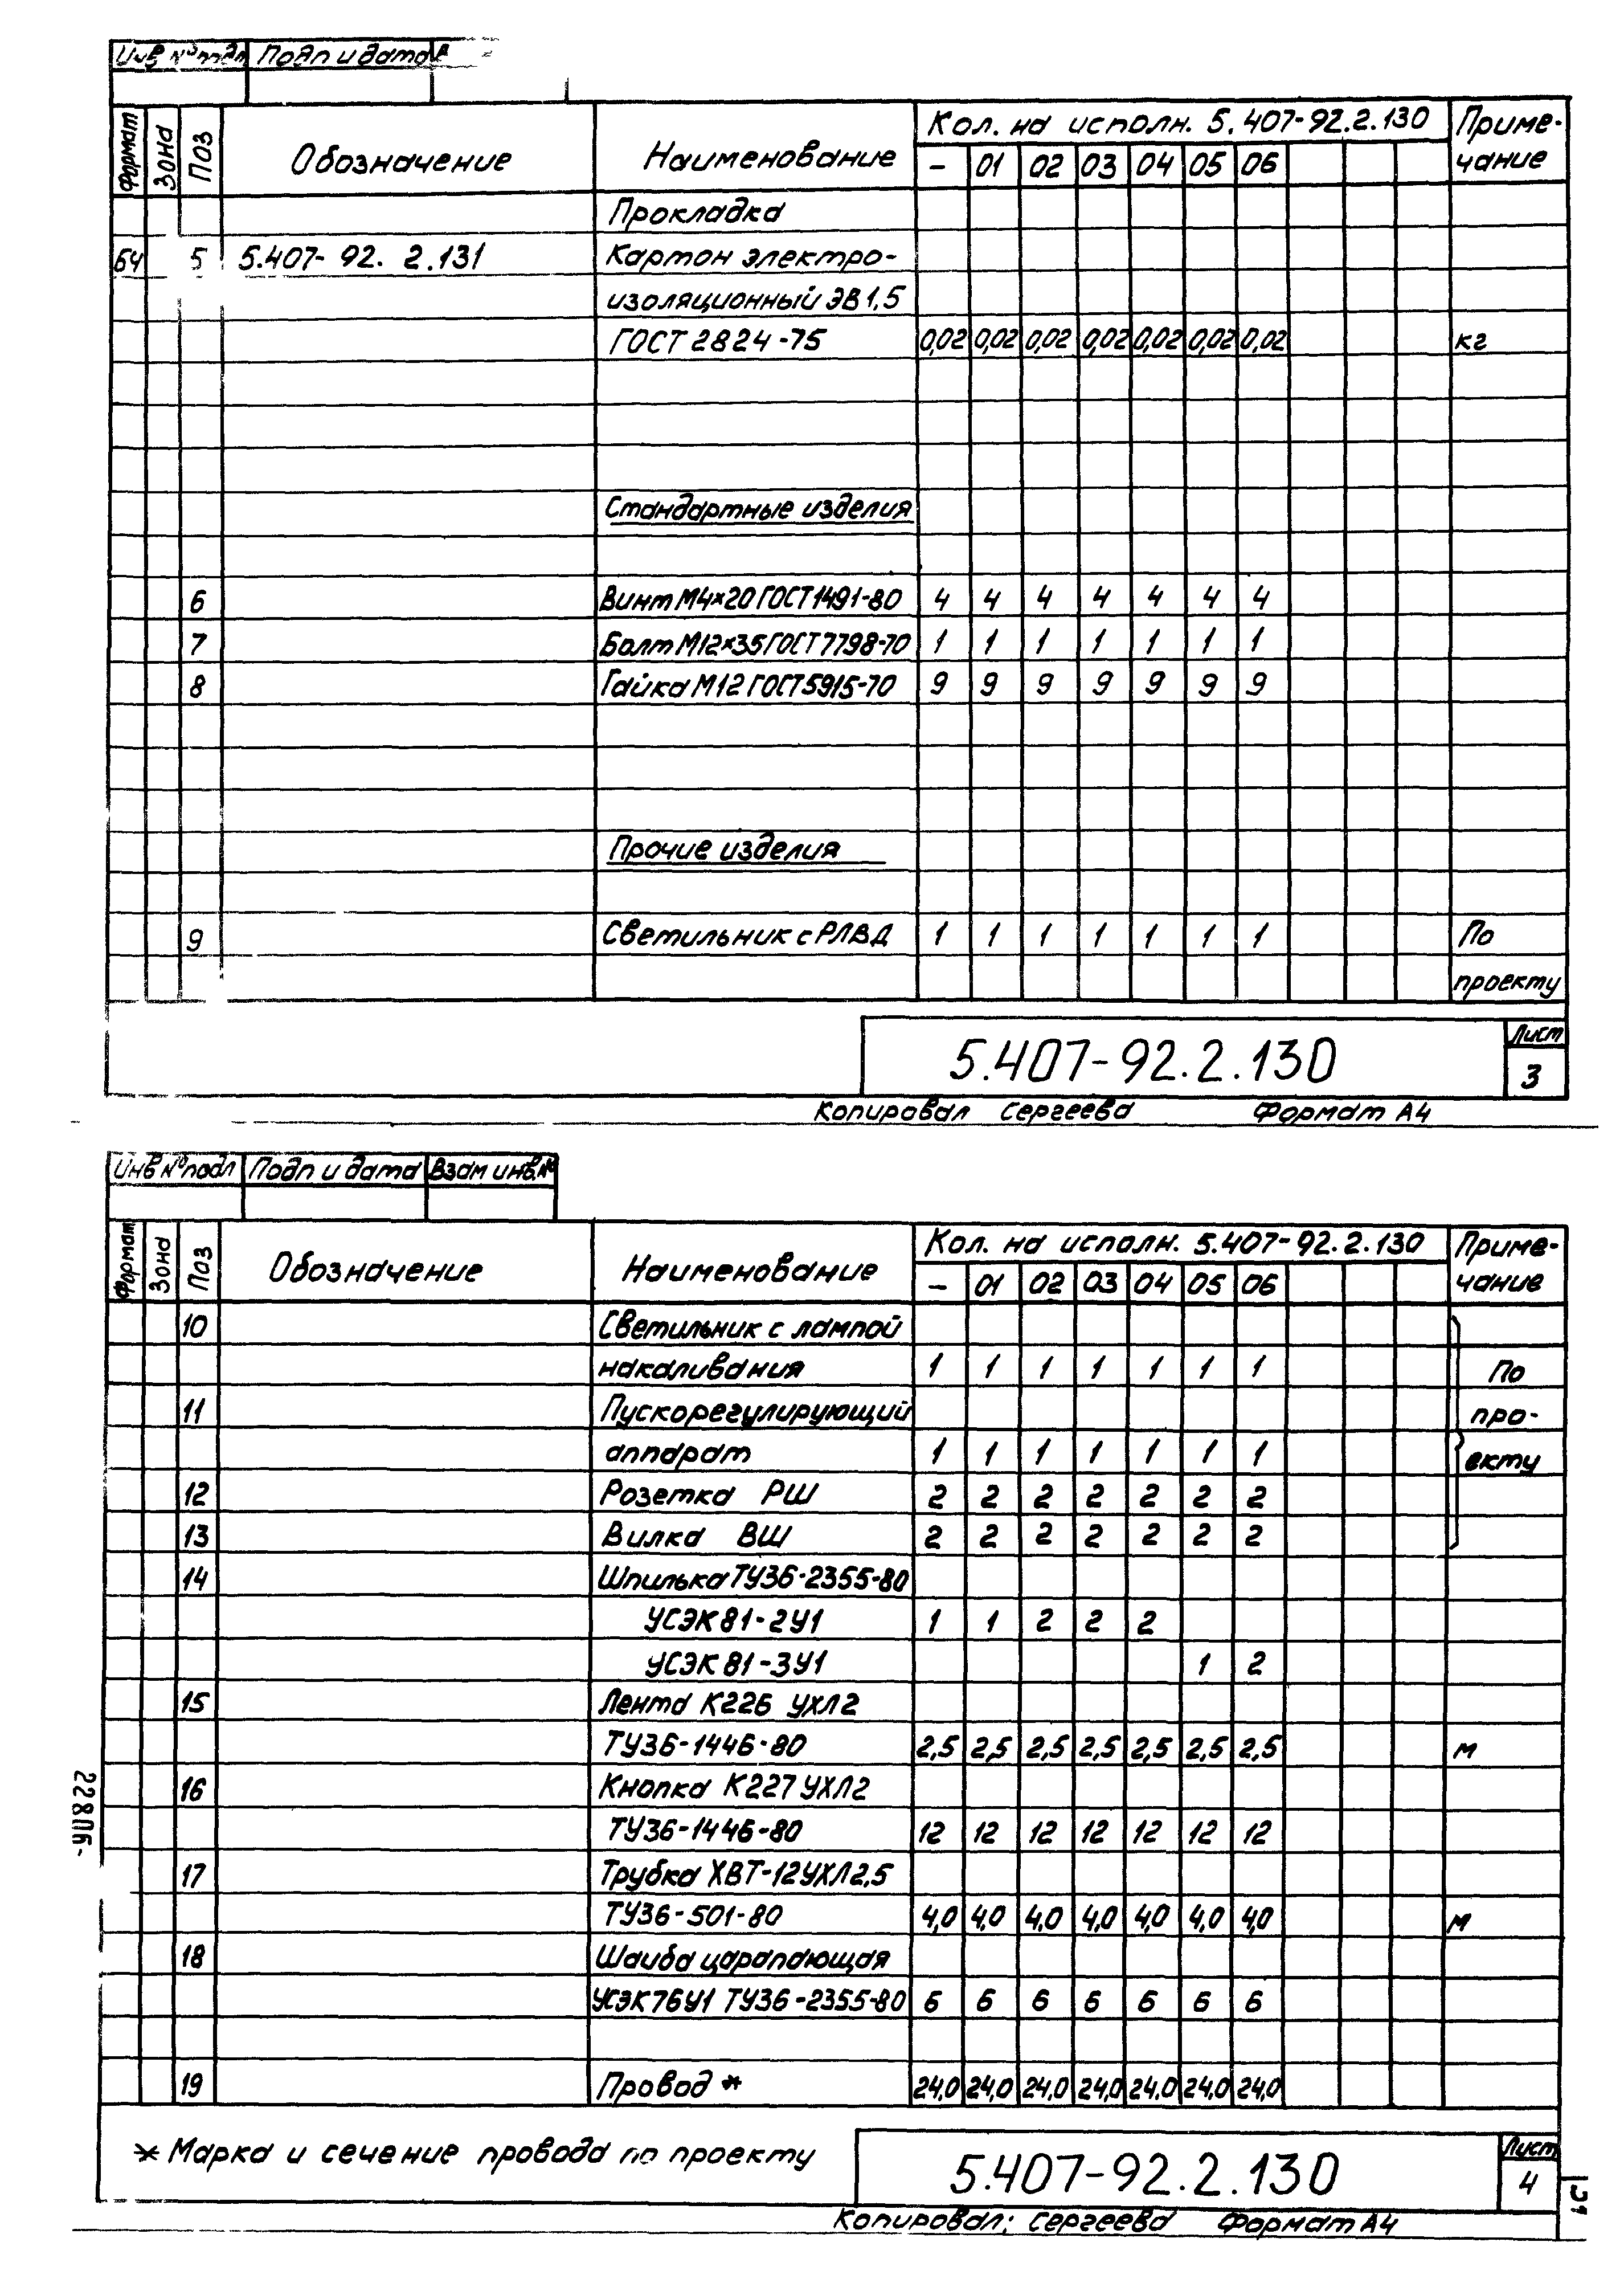 Инв № подл Подп и дата
Формат Зона Поз Обозначение Наименование Кол. на исполн. 5.407-92.2.130 Приме-
чание
- 01 02 03 04 05 06
Прокладка
БЧ 5 5.407-92. 2.131 Картон электро-
изоляционный ЭВ1,5
ГОСТ 2824-75 0,02 0,02 0,02 0,02 0,02 0,02 0,02 кг
Стандартные изделия
6 Винт М4×20 ГОСТ 1491-80 4 4 4 4 4 4 4
7 Болт М12×35 ГОСТ 7798-70 1 1 1 1 1 1 1
8 Гайка М12 ГОСТ 5915-70 9 9 9 9 9 9 9
Прочие изделия
9 Светильник с РЛВД 1 1 1 1 1 1 1 По
проекту
5.407-92.2.130 Лист
3
Копировал Сергеева Формат А4
Инв № подл Подп и дата Взам инв.№
Формат Зона Поз Обозначение Наименование Кол. на исполн. 5.407-92.2.130 Приме-
чание
- 01 02 03 04 05 06
10 Светильник с лампой
накаливания 1 1 1 1 1 1 1 По
11 Пускорегулирующий про-
аппарат 1 1 1 1 1 1 1 екту
12 Розетка РШ 2 2 2 2 2 2 2
13 Вилка ВШ 2 2 2 2 2 2 2
14 Шпилька ТУ36-2355-80
УСЭК 81-2У1 1 1 2 2 2
УСЭК 81-3У1 1 2
15 Лента К226 УХЛ2
ТУ36-1446-80 2,5 2,5 2,5 2,5 2,5 2,5 2,5 м
16 Кнопка К227 УХЛ2
ТУ36-1446-80 12 12 12 12 12 12 12
17 Трубка ХВТ-12УХЛ2,5
ТУ36-501-80 4,0 4,0 4,0 4,0 4,0 4,0 4,0 м
18 Шайба царапающая
УСЭК76У1 ТУ36-2355-80 6 6 6 6 6 6 6
19 Провод * 24,0 24,0 24,0 24,0 24,0 24,0 24,0
* Марка и сечение провода по проекту
5.407-92.2.130 Лист
4
Копировал: Сергеева Формат А4